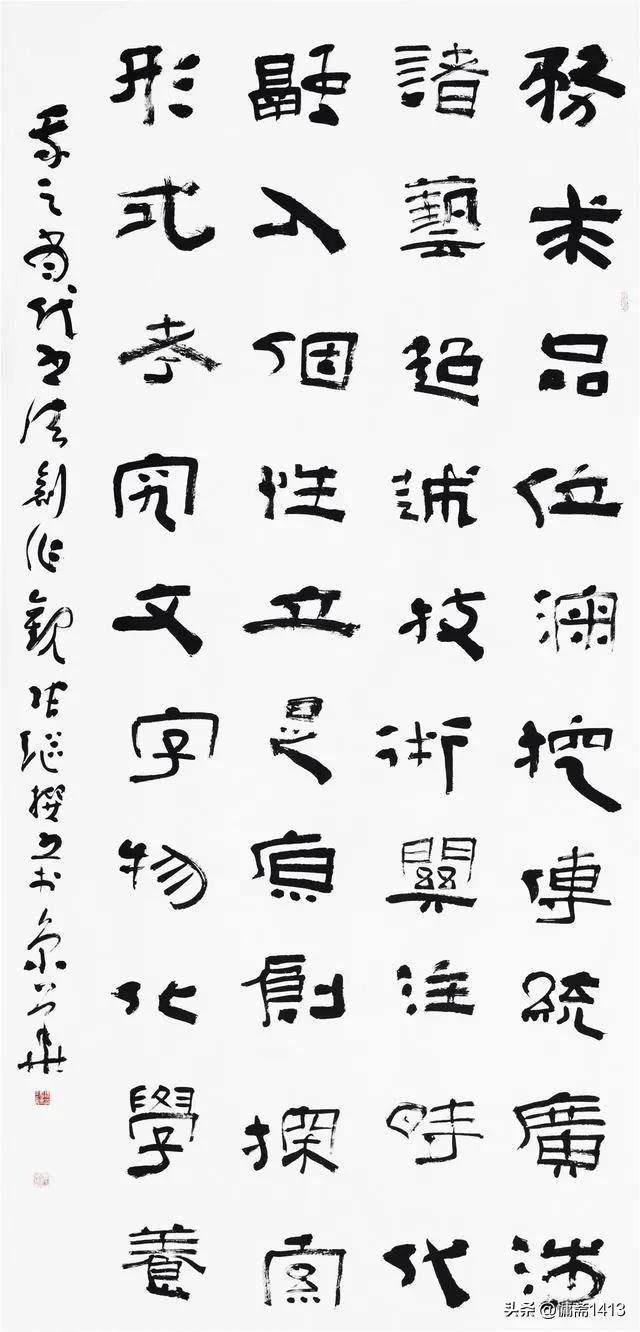 務求品位深挖傳統廣涉
諸藝超越技術關注時代
融入個性立足原創探索
形式考究文字物化學養
我之當代書法創作觀張繼撰書於京華
头条 @慵斋1413